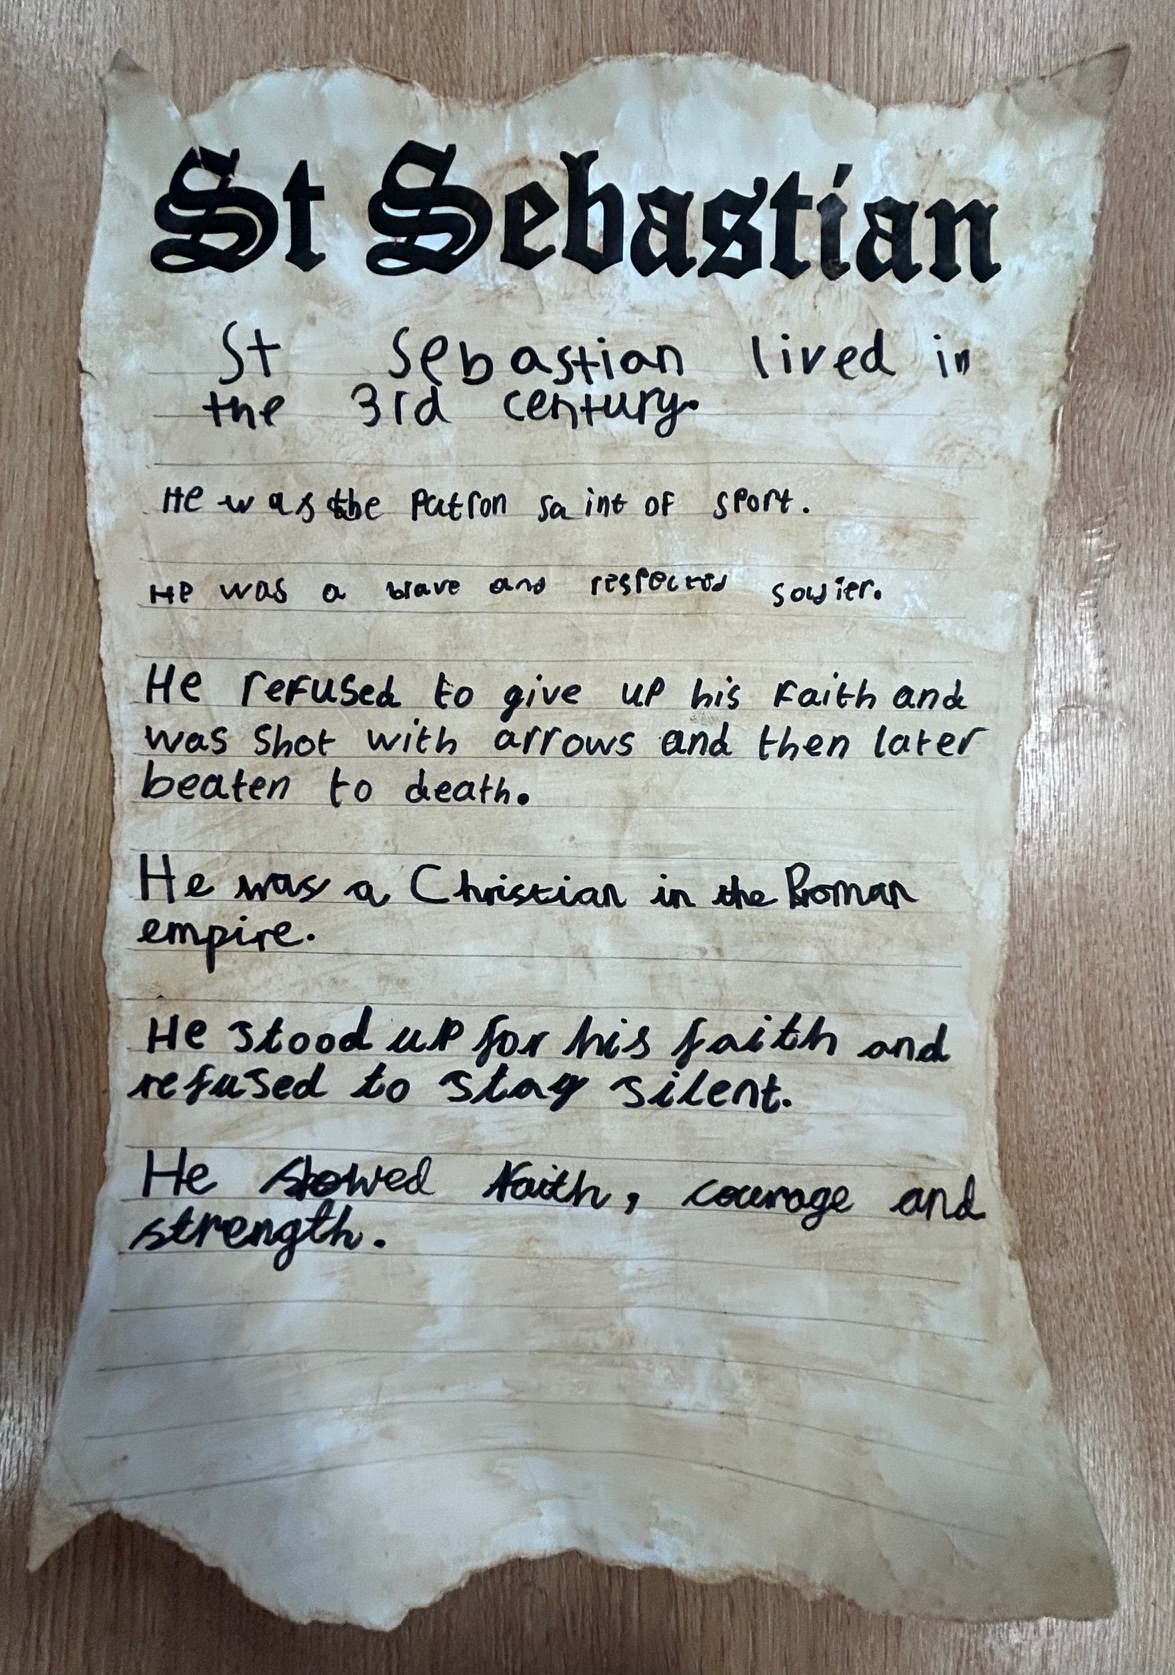 St Sebastian
St Sebastian lived in
the 3rd century.
He was the Patron saint of sport.
He was a brave and respected soldier.
He refused to give up his faith and
was shot with arrows and then later
beaten to death.
He was a Christian in the Roman
empire.
He stood up for his faith and
refused to stay silent.
He showed faith, courage and
strength.